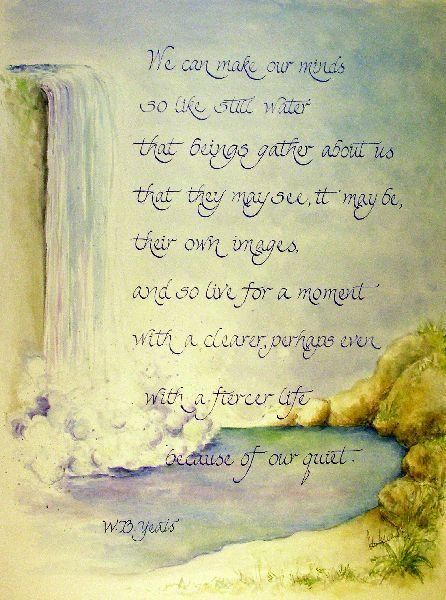 We can make our minds
so like still water
that beings gather about us
that they may see, it may be,
their own images,
and so live for a moment
with a clearer, perhaps even
with a fiercer life
because of our quiet
W.B. Yeats